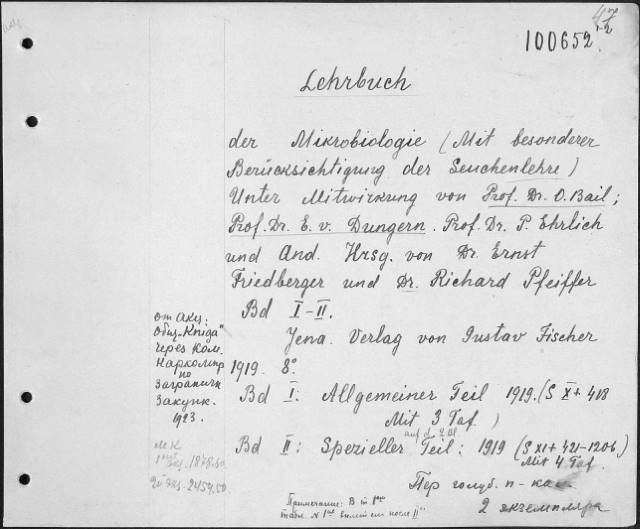 47
100652
Lehrbuch
der Mikrobiologie (Mit besonderer
Berücksichtigung der Seuchenlehre)
Unter Mitwirkung von Prof. Dr. O. Bail;
Prof. Dr. E. v. Dungern. Prof. Dr. P. Ehrlich
und And. Hrsg. von Dr. Ernst
Friedberger und Dr. Richard Pfeiffer
Bd I-II.
Jena. Verlag von Gustav Fischer
1919. 8°.
Bd I: Allgemeiner Teil 1919. (S X + 418
Mit 3 Taf.)
Bd II: Spezieller Teil: 1919 (S XI + 421-1206)
Mit 4 Taf.
от Акц:
Общ. "Книга"
через Ком.
Наркомпр
по
Загранич
Закупк.
1923.
М.К
Пер голуб. п-ка
2 экземпляра
Примечание: В I
табл. № 1 после II"